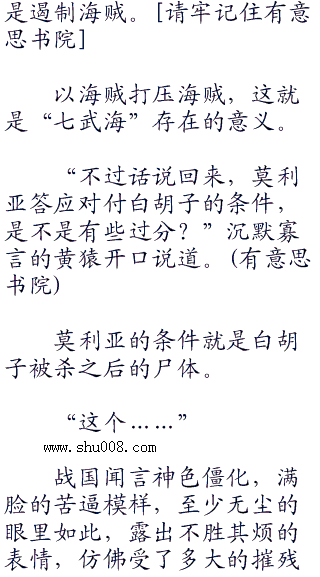 是遏制海贼。[请牢记住有意
思书院]
以海贼打压海贼，这就
是“七武海”存在的意义。
“不过话说回来，莫利
亚答应对付白胡子的条件，
是不是有些过分？”沉默寡
言的黄猿开口说道。(有意思
书院)
莫利亚的条件就是白胡
子被杀之后的尸体。
“这个……”
www.shu008.com
战国闻言神色僵化，满
脸的苦逼模样，至少无尘的
眼里如此，露出不胜其烦的
表情，仿佛受了多大的摧残